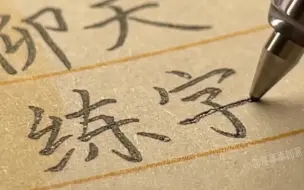 聊天
练字